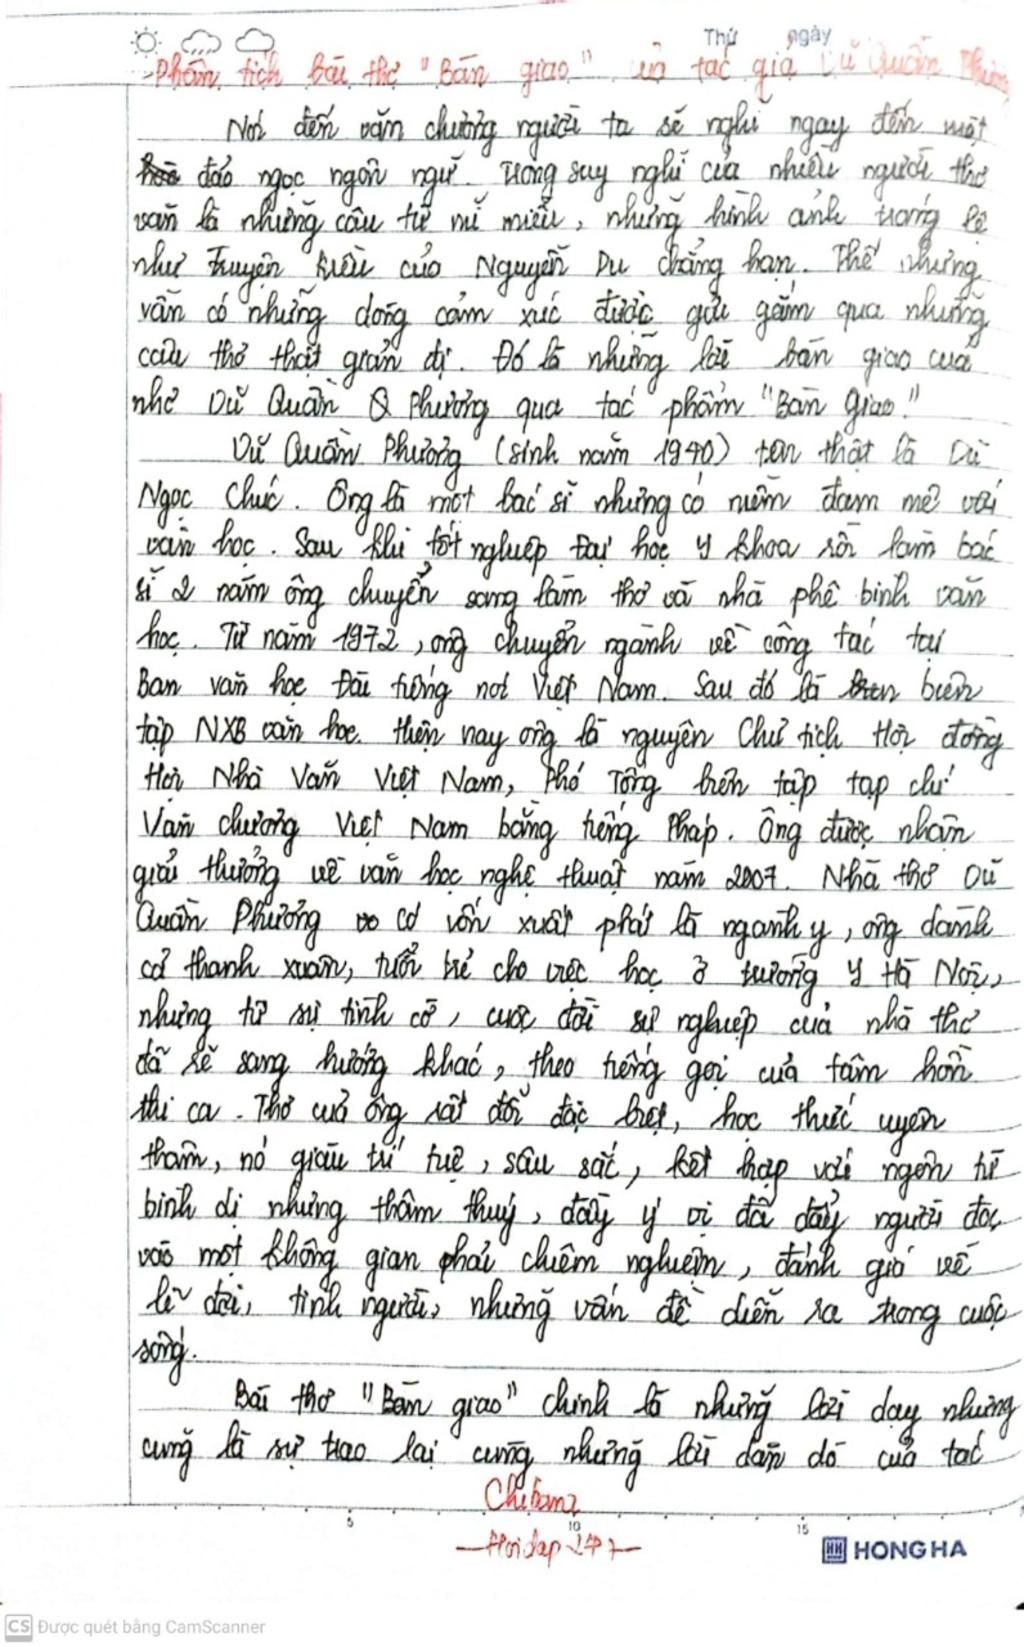 Thứ ngày
Phân tích bài thơ "Bàn giao" của tác giả Vũ Quần Phương
Nói đến văn chương người ta sẽ nghĩ ngay đến một
đảo ngọc ngôn ngữ. Trong suy nghĩ của nhiều người thơ
văn là những câu từ mĩ miều, những hình ảnh tráng lệ
như Truyện Kiều của Nguyễn Du chẳng hạn. Thế nhưng
vẫn có những dòng cảm xúc được gửi gắm qua những
câu thơ thật giản dị. Đó là những lời bàn giao của
nhà Vũ Quần Phương qua tác phẩm "Bàn Giao."
Vũ Quần Phương (sinh năm 1940) tên thật là Vũ
Ngọc Chúc. Ông là một bác sĩ nhưng có niềm đam mê với
văn học. Sau khi tốt nghiệp Đại học Y khoa rồi làm bác
sĩ 2 năm ông chuyển sang làm thơ và nhà phê bình văn
học. Từ năm 1972, ông chuyển ngành về công tác tại
Ban văn học Đài tiếng nói Việt Nam. Sau đó là biên
tập NXB văn học. Hiện nay ông là nguyên Chủ tịch Hội đồng
Hội Nhà Văn Việt Nam, Phó Tổng biên tập tạp chí
Văn chương Việt Nam bằng tiếng Pháp. Ông được nhận
giải thưởng về văn học nghệ thuật năm 2007. Nhà thơ Vũ
Quần Phương có vốn xuất phát là ngành y, ông dành
cả thanh xuân, tuổi trẻ cho việc học ở trường Y Hà Nội,
nhưng từ sự tình cờ, cuộc đời sự nghiệp của nhà thơ
đã rẽ sang hướng khác, theo tiếng gọi của tâm hồn
thi ca. Thơ của ông rất đỗi đặc biệt, học thức uyên
thâm, nó giàu trí tuệ, sâu sắc, kết hợp với ngôn từ
bình dị nhưng thâm thuý, đầy ý vị đã đẩy người đọc
vào một không gian phải chiêm nghiệm, đánh giá về
lẽ đời, tình người, những vấn đề diễn ra trong cuộc
sống.
Bài thơ "Bàn giao" chính là những lời dạy nhưng
cũng là sự trao lại cùng những lời dặn dò của tác
Hoidap 247
5 10 15
HH HONG HA
CS Được quét bằng CamScanner